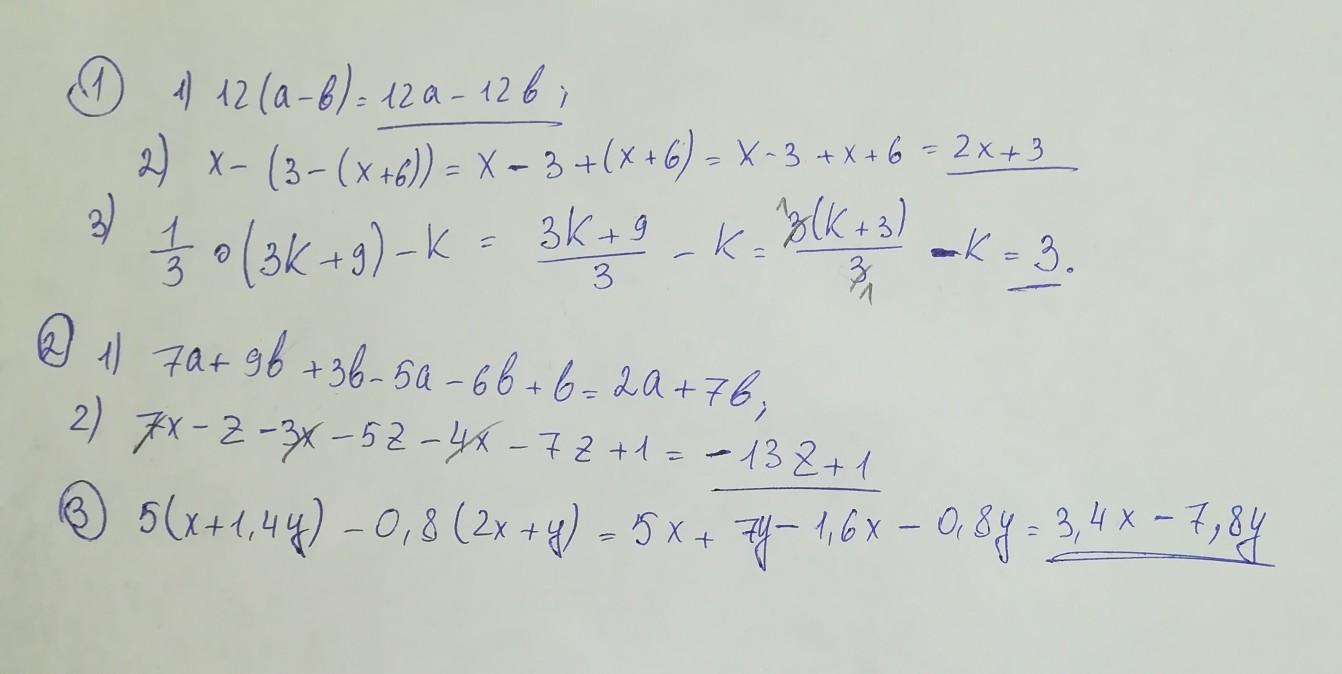 ① 1) 12(a-b) = 12a - 12b;
2) x - (3-(x+6)) = x - 3 + (x+6) = x - 3 + x + 6 = 2x + 3
3) 1/3 · (3k+9) - k = (3k+9)/3 - k = 3(k+3)/3 - k = 3.
② 1) 7a + 9b + 3b - 5a - 6b + b = 2a + 7b;
2) 7x - z - 3x - 5z - 4x - 7z + 1 = -13z + 1
③ 5(x+1,4y) - 0,8(2x+y) = 5x + 7y - 1,6x - 0,8y = 3,4x - 7,8y